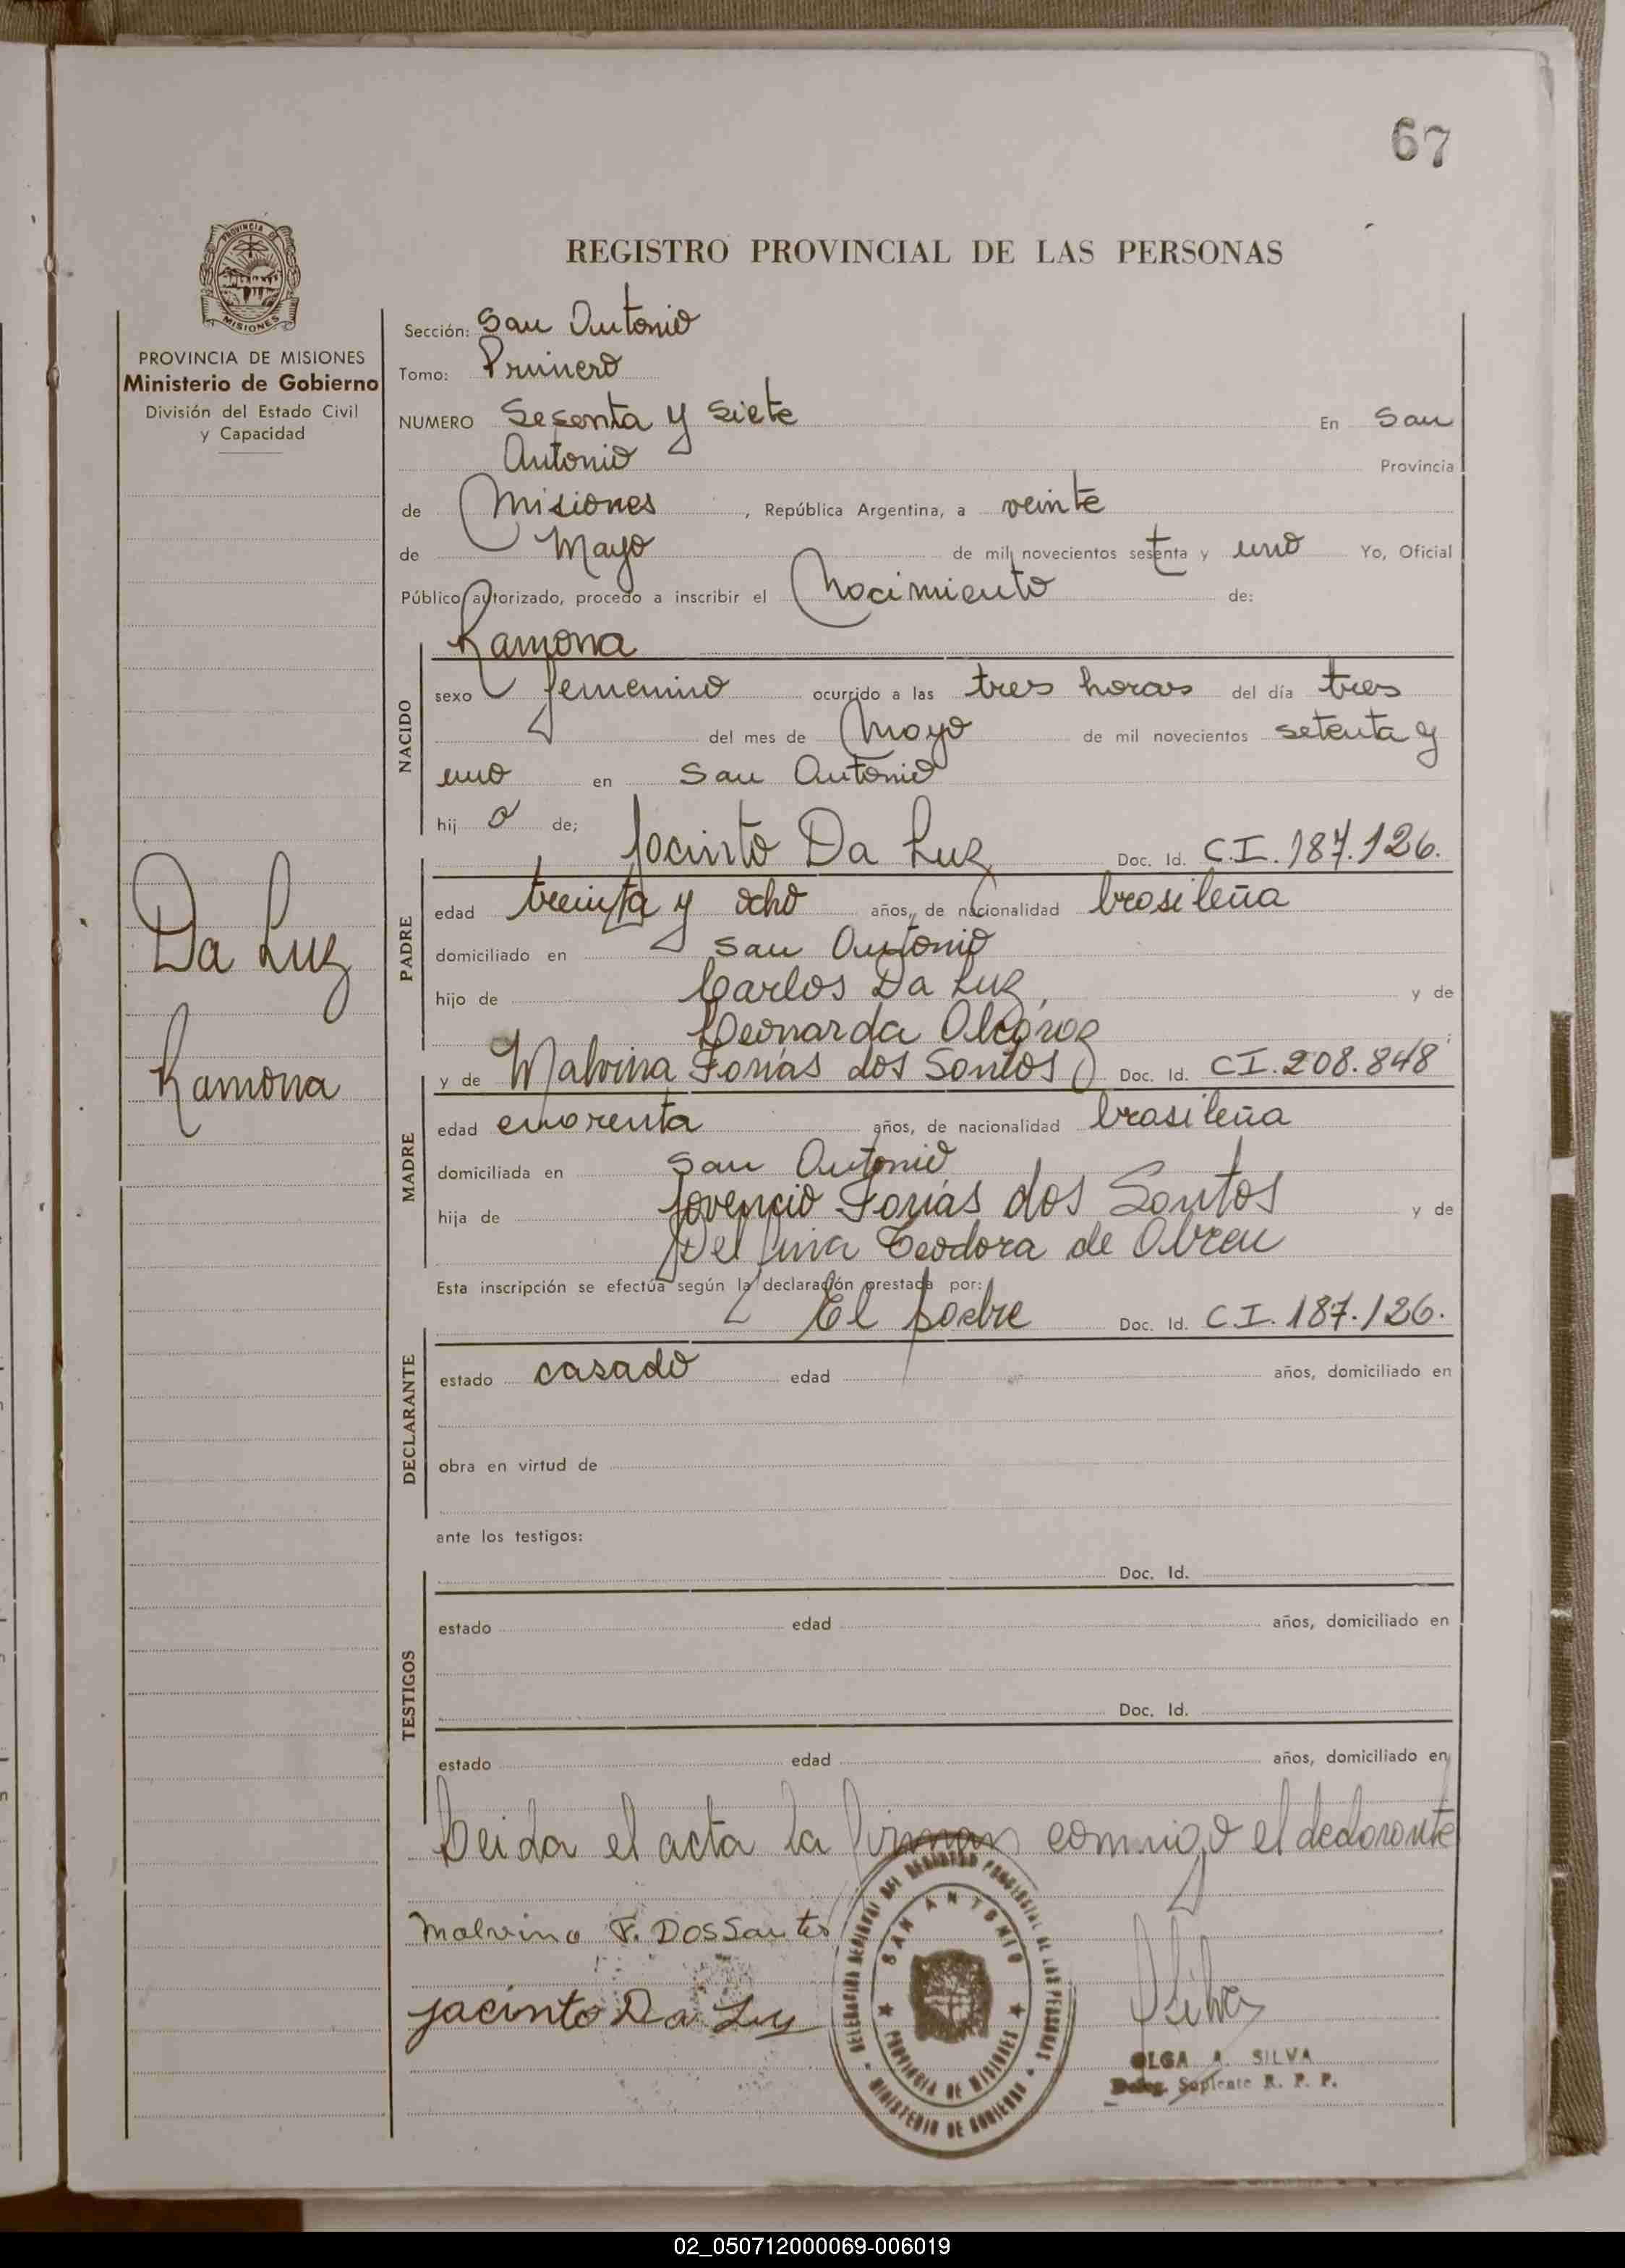 67
REGISTRO PROVINCIAL DE LAS PERSONAS
PROVINCIA DE MISIONES
PROVINCIA DE MISIONES
Ministerio de Gobierno
División del Estado Civil
y Capacidad
Da Luz
Ramona
Sección: San Antonio
Tomo: Primero
NUMERO Sesenta y siete En San
Antonio Provincia
de Misiones, República Argentina, a veinte
de Mayo de mil novecientos setenta y uno Yo, Oficial
Público autorizado, procedo a inscribir el Nacimiento de:
Ramona
NACIDO
sexo femenino ocurrido a las tres horas del día tres
del mes de Mayo de mil novecientos setenta y
uno en San Antonio
hij a de;
Jacinto Da Luz Doc. Id. C.I. 187.126.
PADRE
edad treinta y ocho años, de nacionalidad brasileña
domiciliado en San Antonio
hijo de Carlos Da Luz, y de
Leonarda
y de Malvina Farias dos Santos Doc. Id. CI. 208.848
MADRE
edad cuarenta años, de nacionalidad brasileña
domiciliada en San Antonio
hija de Jovencio Farias dos Santos y de
Delfina Teodora de Abreu
Esta inscripción se efectúa según la declaración prestada por:
El padre Doc. Id. C.I. 187.126.
DECLARANTE
estado casado edad años, domiciliado en
obra en virtud de
ante los testigos:
Doc. Id.
TESTIGOS
estado edad años, domiciliado en
Doc. Id.
estado edad años, domiciliado en
Leida el acta la firman conmigo el declarante
Malvina F. Dos Santos
Jacinto Da Luz
DELEGACION SECCIONAL DEL REGISTRO PROVINCIAL DE LAS PERSONAS
SAN ANTONIO
PROVINCIA DE MISIONES
MINISTERIO DE GOBIERNO
OSilva
OLGA A. SILVA
Deleg. Suplente R. P. P.
02_050712000069-006019